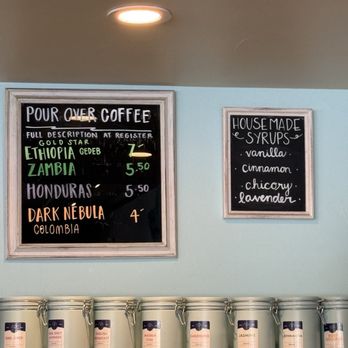 POUR OVER COFFEE
FULL DESCRIPTION AT REGISTER
GOLD STAR
ETHIOPIA GEDEB 7
ZAMBIA 5.50
HONDURAS 5.50
DARK NÉBULA 4
COLOMBIA
HOUSEMADE
SYRUPS
vanilla
cinnamon
chicory
lavender